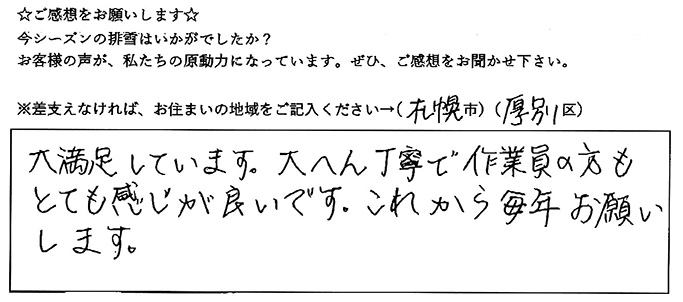 ☆ご感想をお願いします☆
今シーズンの排雪はいかがでしたか？
お客様の声が、私たちの原動力になっています。ぜひ、ご感想をお聞かせ下さい。
※差支えなければ、お住まいの地域をご記入ください→（札幌市）（厚別区）
大満足しています。大へん丁寧で作業員の方も
とても感じが良いです。これから毎年お願い
します。